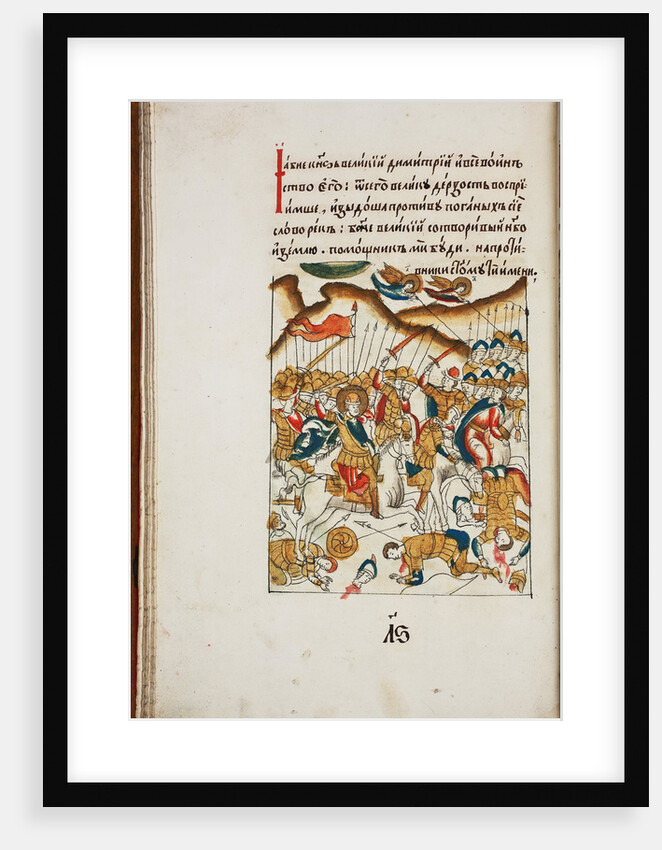 Їабие кн҃зь великїй димитрїй и все воинъ
ство его: ѿ сего велику дерзость воспрї
имше, изыдоша противу поганыхъ сїе
слово рекъ: бж҃е великїй сотворивый нб҃о
и землю. помощникъ ми буди. на проти
вники ст҃ому ти имени,
лѕ